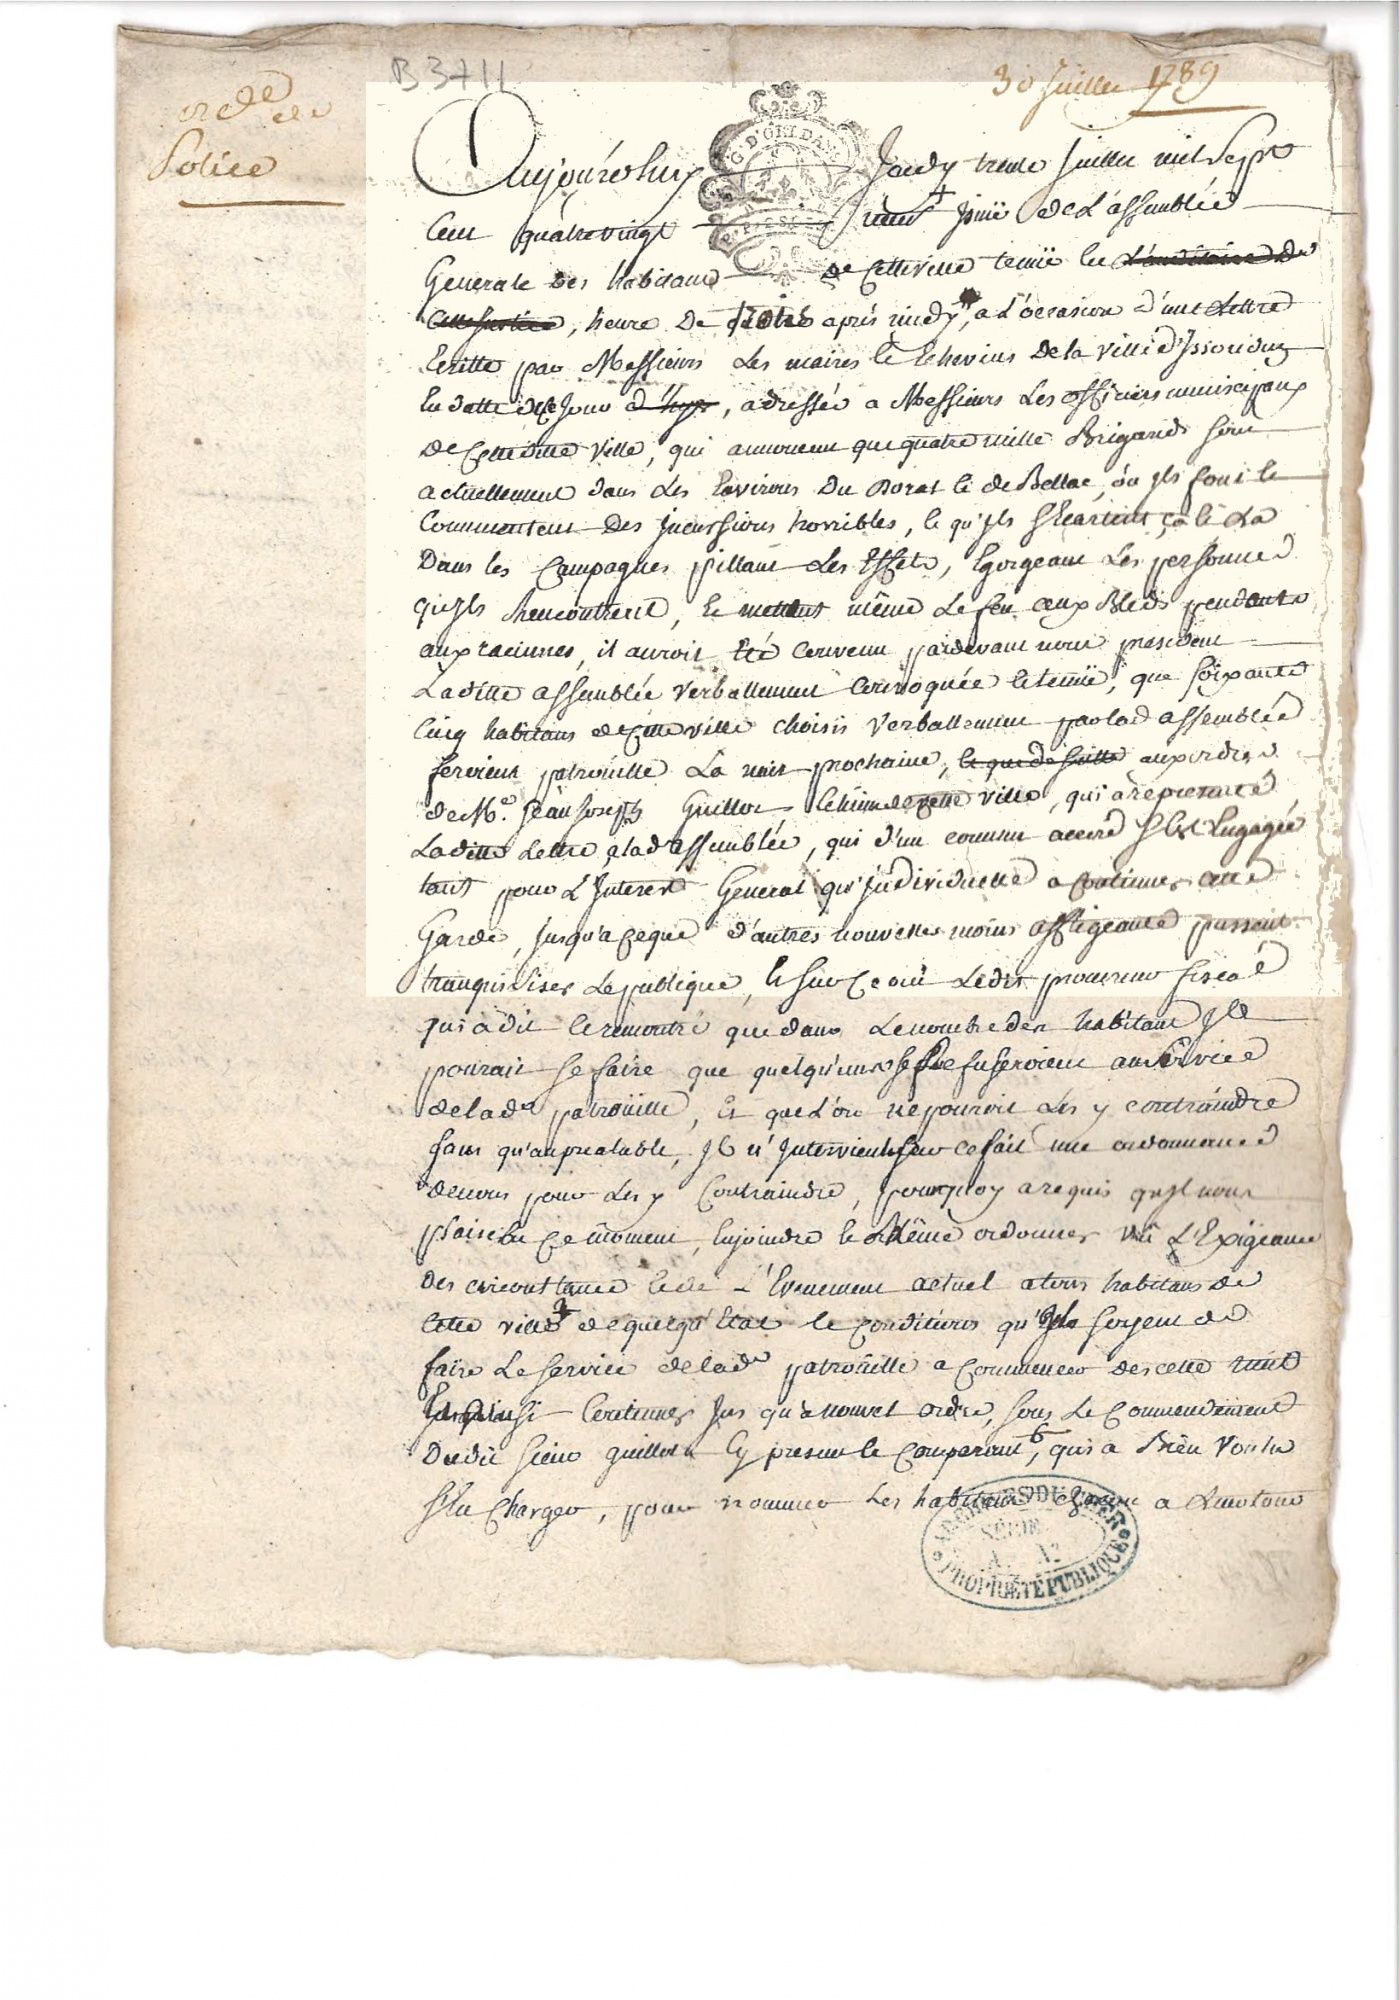 B 3711
30 Juillet 1789
ord.ce de
Police
Aujourdhuy Jeudy trente Juillet mil Sept
Cent quatre vingt neuf issüe de L'assemblée
Generale des habitans de Cette ville tenüe en L'auditoire de
Cette Justice, heure de trois après midy, a L'occasion d'une Lettre
Ecritte par Messieurs Les maires et Echevins de la ville d'Issoudun
En datte de ce Jour d'hyer, adressée a Messieurs Les officiers municipaux
de Cette ditte ville, qui annoncent que quatre mille Brigands sont
actuellement dans Les Environs du Dorat et de Bellac, où ils font et
Commentent des Incurssions horribles, et qu'ils s'Ecartent ça et La
Dans les Campagnes pillant Les Effets, Egorgeant Les personnes
qu'ils Rencontrent, et mettent même Le feu aux Bleds pendants
aux racinnes, il auroit Eté Convenu pardevant nous president
Laditte assemblée verballement Convoquée et tenüe, que soixante
Cinq habitans de Cette ville choisis verballement par lad assemblée
feroient patrouille La nuit prochaine, et que de suitte aux ordres
de M.e Jean Joseph Guillot Echevin de cette ville, qui a représenté
Laditte Lettre a lad assemblée, qui d'un commun accord s'est Engagée
tant pour L'Interest General qu'Individuelle a Continuer cette
Garde, Jusqu'a ce que d'autres nouvelles moins affligeante pussent
tranquiliser Le publique, et sur ce oui Ledit procureur fiscal
qui a dit et remontré que dans Le nombre des habitans Il
pourait se faire que quelqu'uns se Refuseroient au Service
de lad.e patroüille, Et que L'on ne pouroit Les y contraindre
sans qu'au prealable, Il n'Intervient sur ce fait une ordonnance
de nous pour Les y Contraindre, pourquoy a requis qu'il nous
plaise En ce moment, Enjoindre et même ordonner vû L'Exigeance
des circonstance et de L'Evenement actuel a tous habitans de
Cette ville de quelqu'Etat et Conditions qu'ils soyent de
faire Le service de lad.e patroüille a Commencer des cette nuit
Et ainsi Continuer Jus qu'a nouvel ordre, sous Le Commendement
Dudit sieur guillot Cy present et Comparant, qui a Bien voulu
s'En Charger, pour nommer Les habitans chacun a Leur tour
G. D'ORLEANS
ARCHIVES DU CHER
SÉRIE
PROPRIÉTÉ PUBLIQUE